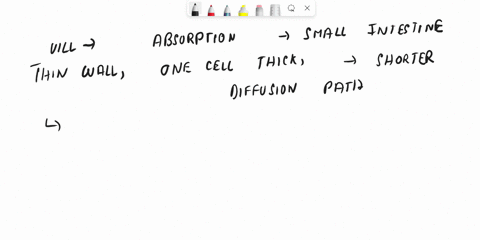 VILL → ABSORPTION → SMALL INTESTINE
THIN WALL, ONE CELL THICK, → SHORTER
DIFFUSION PATH
↳